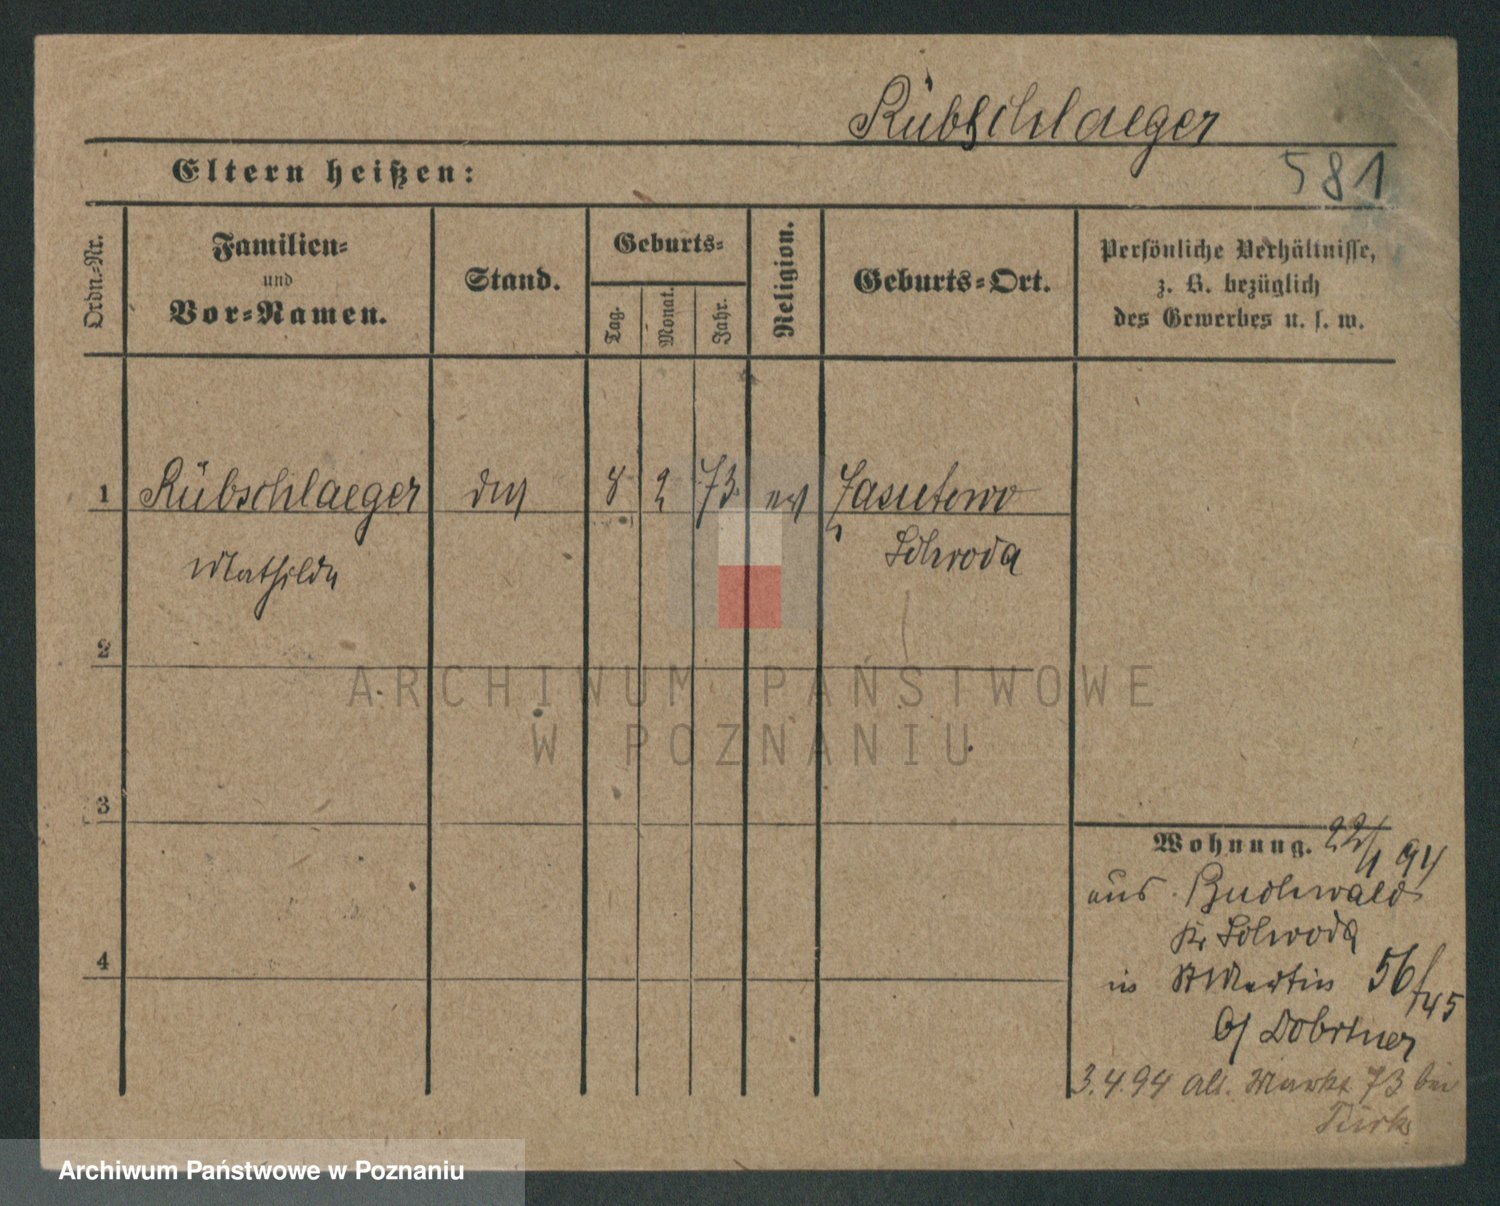 Rübschlaeger
581
Eltern heißen:
Ordn.-Nr.
Familien-
und
Vor-Namen.
Stand.
Geburts-
Tag.
Monat.
Jahr.
Religion.
Geburts-Ort.
Persönliche Verhältnisse,
z. B. bezüglich
des Gewerbes u. s. w.
1 Rübschlaeger 8 2 73 ev
Mathilde
Schroda
2
ARCHIWUM PAŃSTWOWE
W POZNANIU
3
4
Wohnung. 22/1 94
aus Buchwald
Kr Schroda
in St Martin 56/45
b/
3.4.94 Alt. Markt 73 bei
Türk
Archiwum Państwowe w Poznaniu